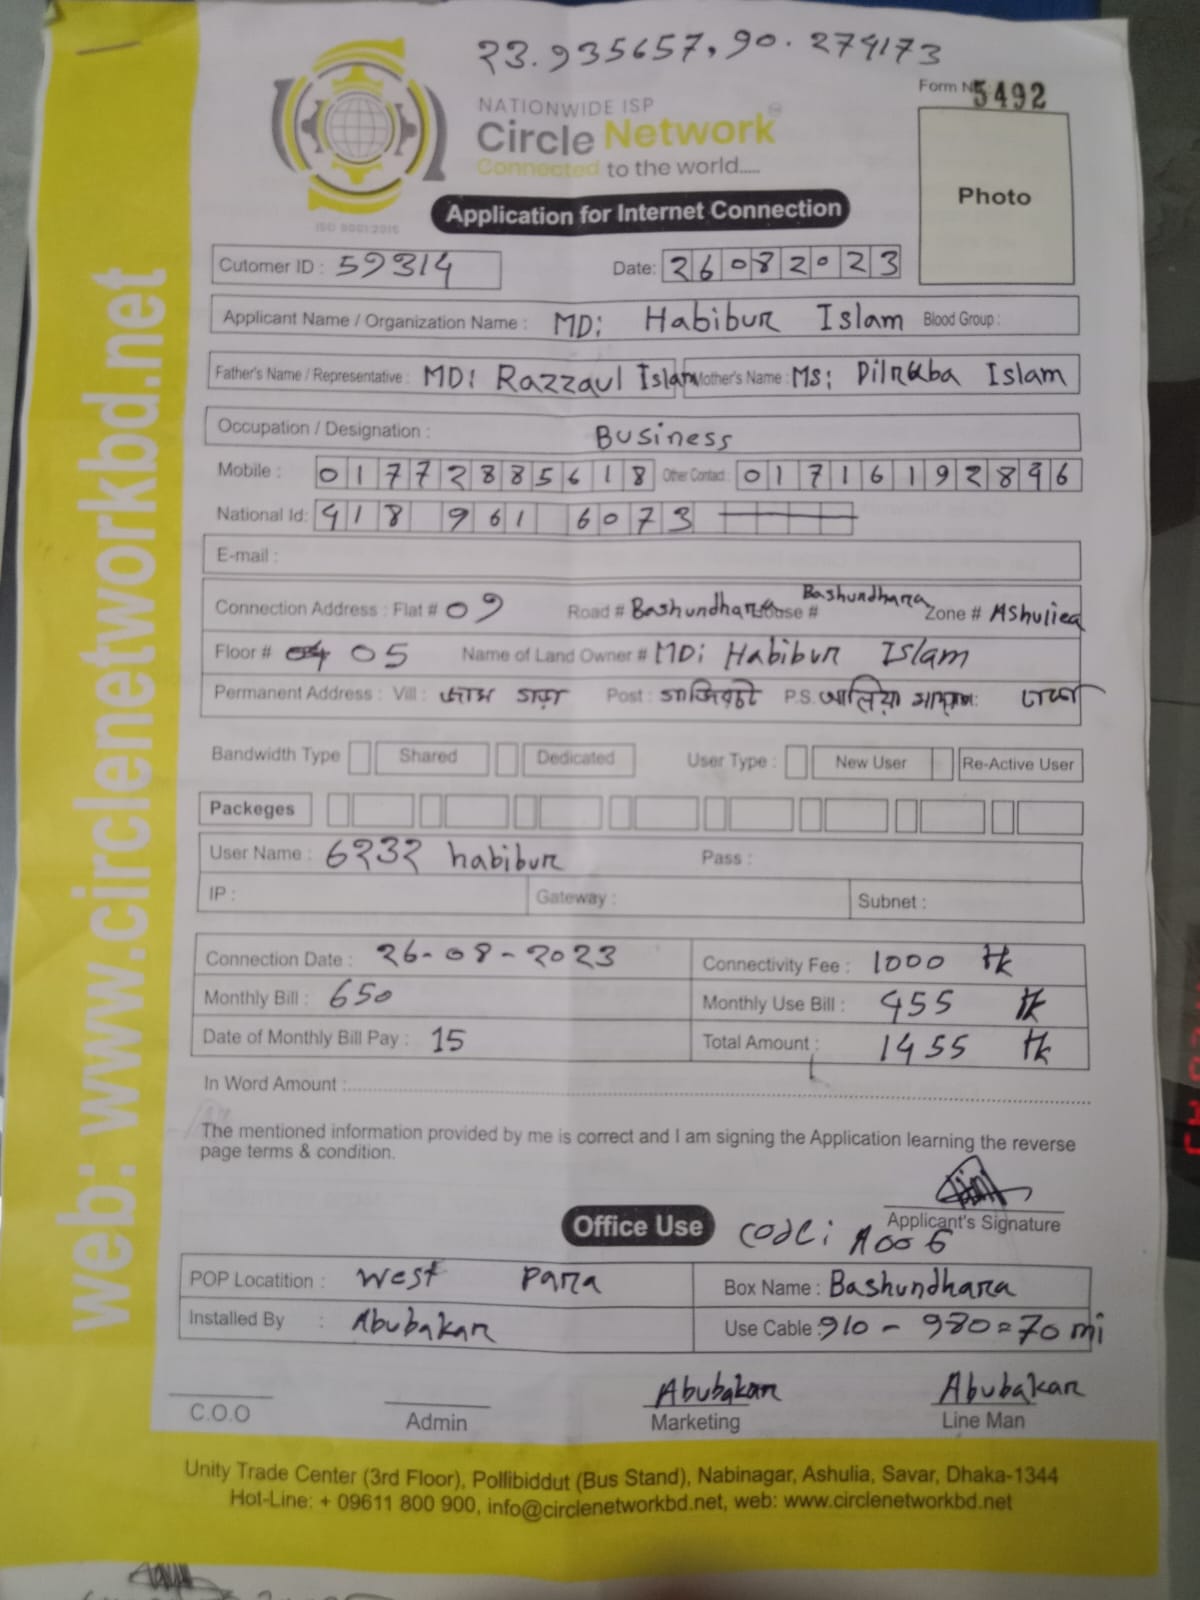 23.935657, 90.274173
Form N 5492
NATIONWIDE ISP
Circle Network
Connected to the world.....
ISO 9001:2015
Photo
Application for Internet Connection
Cutomer ID : 59314 Date: 26082023
Applicant Name / Organization Name : MD: Habibur Islam Blood Group :
Father's Name / Representative : MD: Razzaul Islam Mother's Name : MS: Dilruba Islam
Occupation / Designation : Business
Mobile : 01772885618 Other Contact : 01716192896
National Id: 418 961 6073
E-mail :
Connection Address : Flat # 09 Road # Bashundhara House # Bashundhara Zone # AShuliea
Floor # 05 Name of Land Owner # MD: Habibur Islam
Permanent Address : Vill : Post : P.S.
Bandwidth Type Shared Dedicated User Type : New User Re-Active User
Packeges
User Name : 6232 habibur Pass :
IP : Gateway : Subnet :
Connection Date : 26-08-2023 Connectivity Fee : 1000 tk
Monthly Bill : 650 Monthly Use Bill : 455 tk
Date of Monthly Bill Pay : 15 Total Amount : 1455 tk
In Word Amount :
The mentioned information provided by me is correct and I am signing the Application learning the reverse
page terms & condition.
Applicant's Signature
Office Use Code: A006
POP Locatition : West Para Box Name : Bashundhara
Installed By : Abubakar Use Cable : 910 - 980 = 70 mi
Abubakar Abubakar
C.O.O Admin Marketing Line Man
Unity Trade Center (3rd Floor), Pollibiddut (Bus Stand), Nabinagar, Ashulia, Savar, Dhaka-1344
Hot-Line: + 09611 800 900, info@circlenetworkbd.net, web: www.circlenetworkbd.net
web: www.circlenetworkbd.net